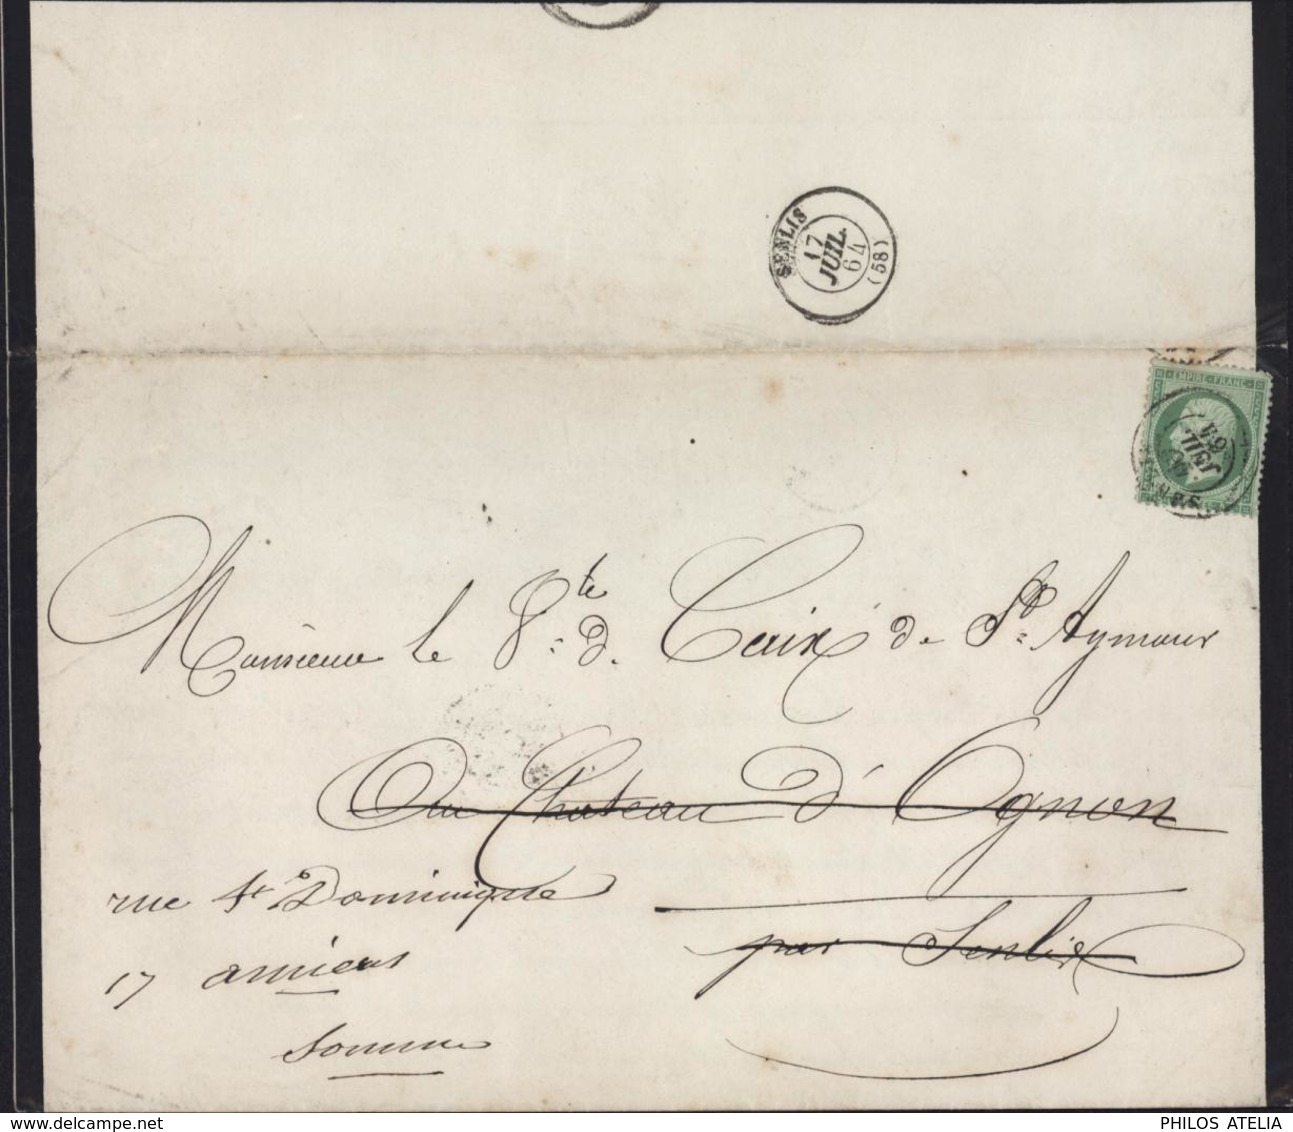 SENLIS
17
JUIL.
64
(58)
EMPIRE FRANC
JUIL.
64
Monsieur le Vte d. Caix de St Aymour
Au Chateau d'Ognon
rue St Dominique
par Senlis
17 amiens
Somme
PHILOS ATELIA